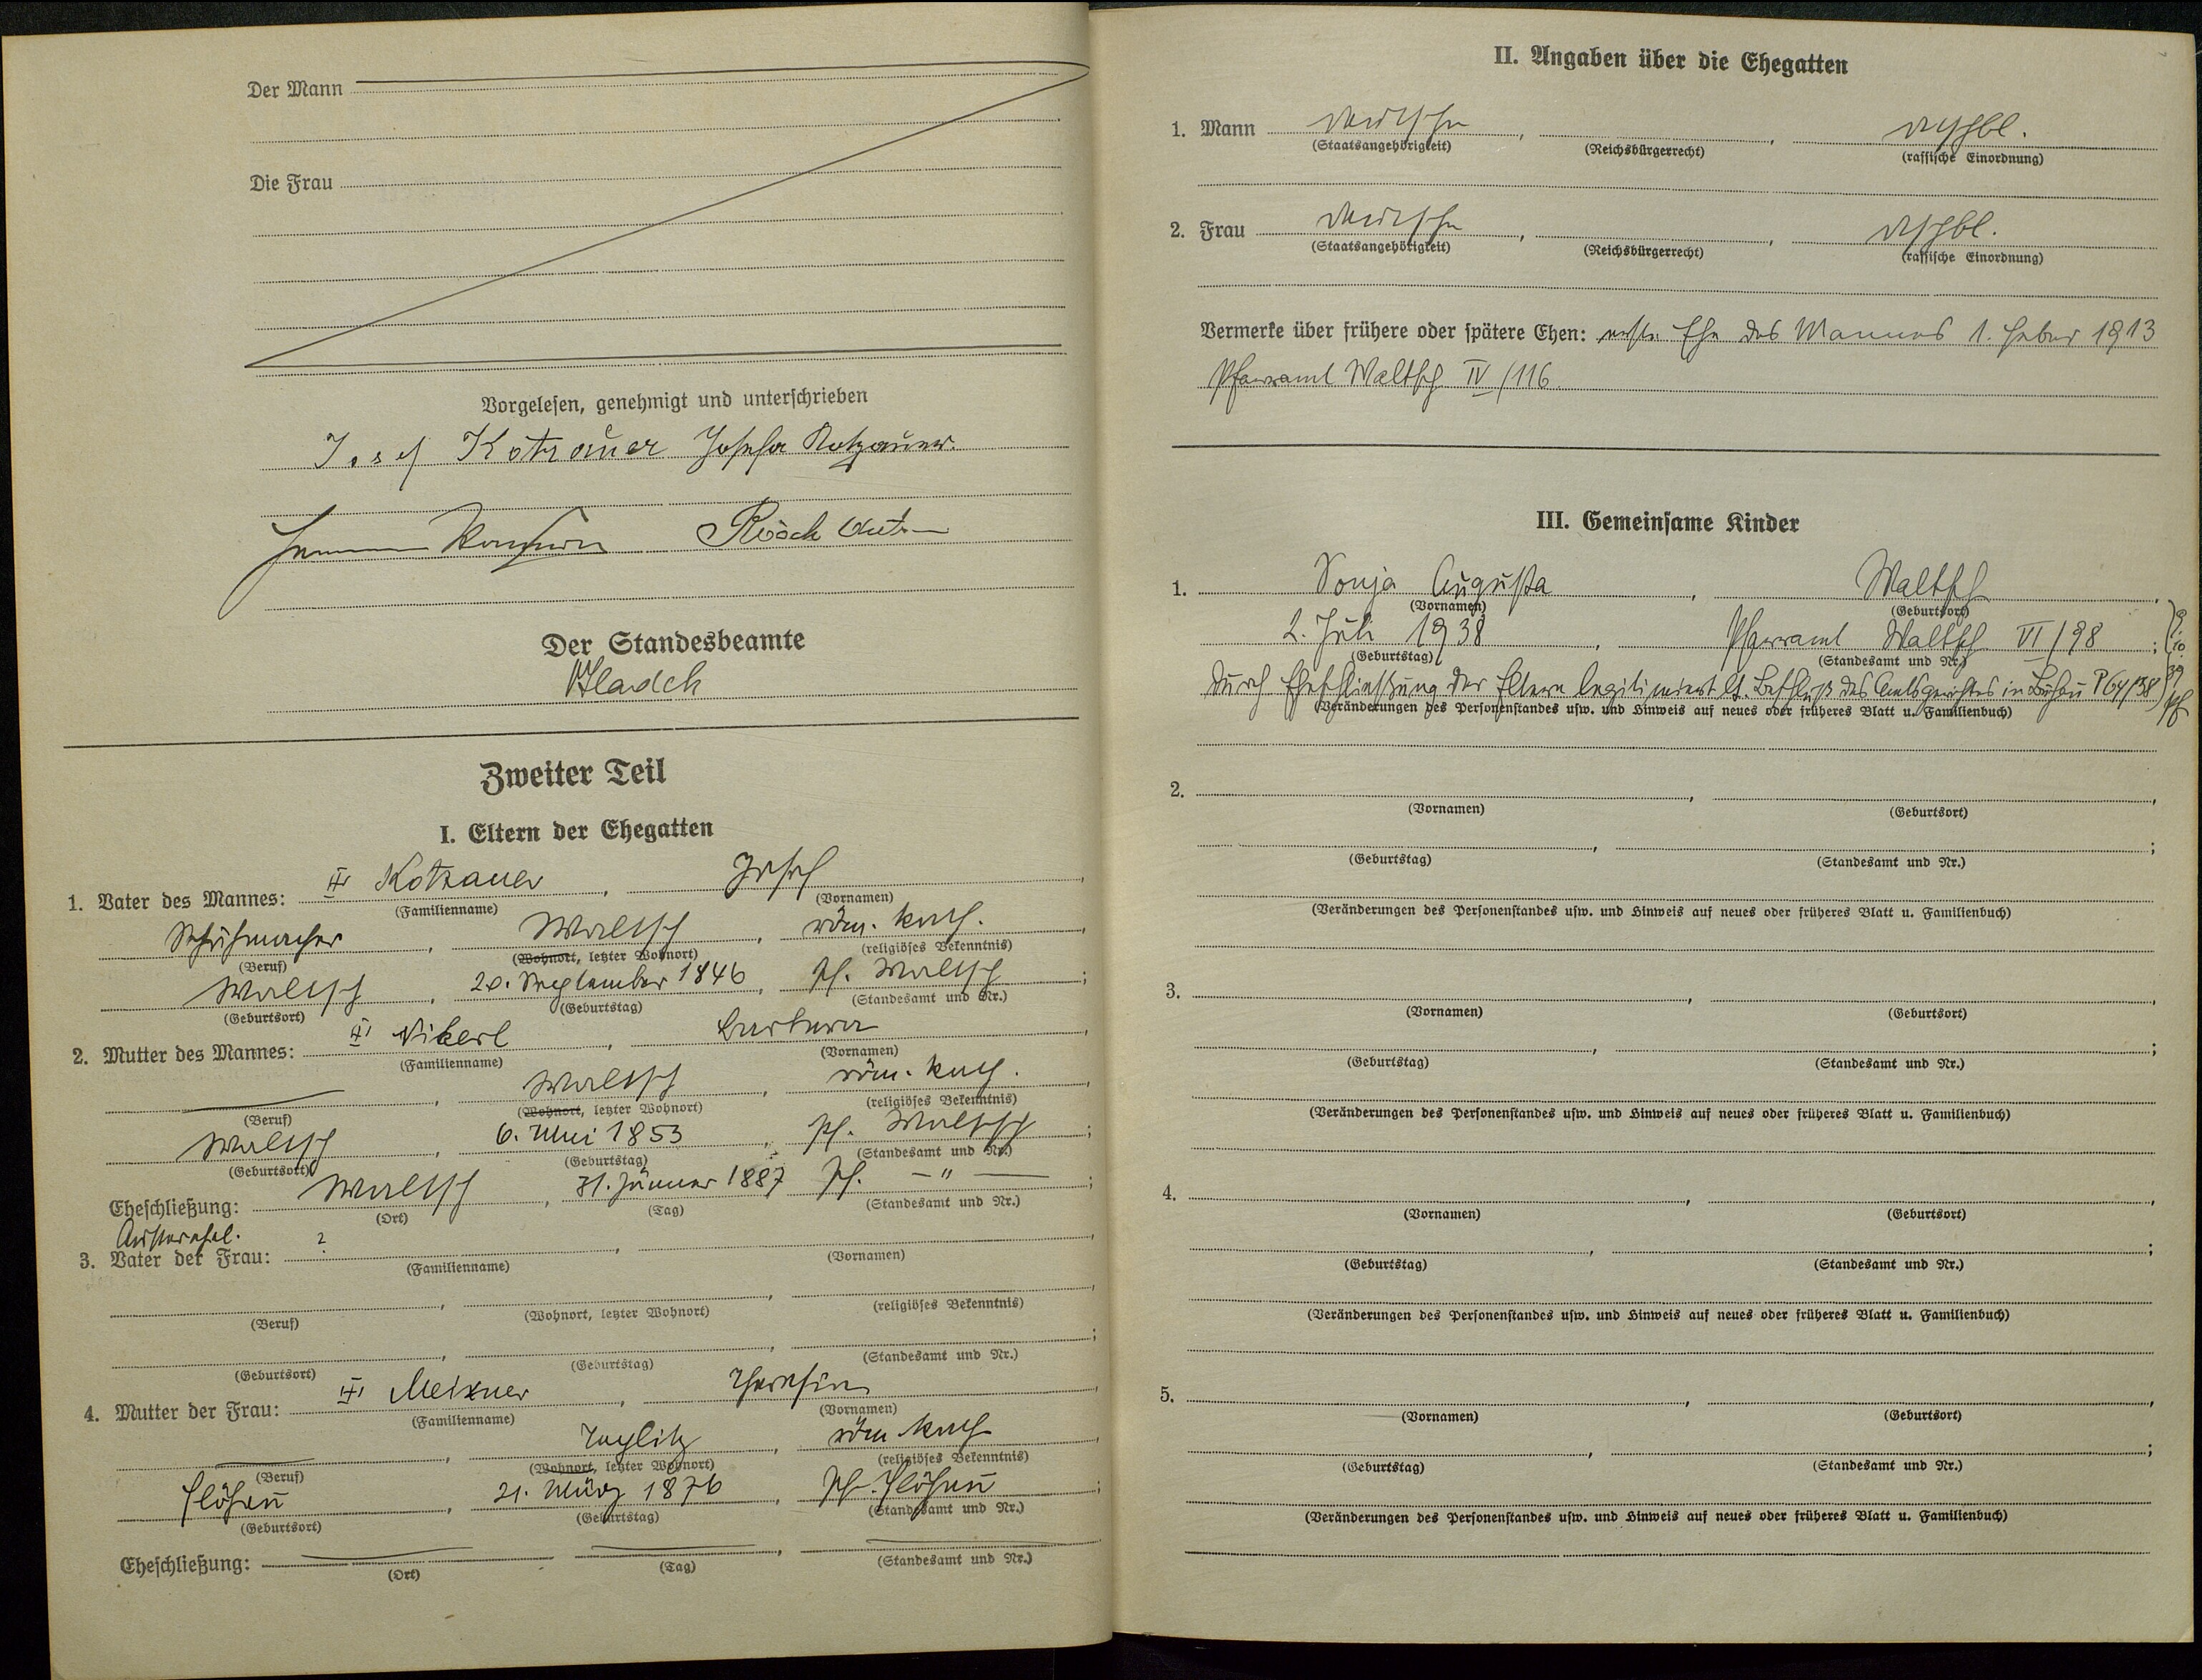 Der Mann
Die Frau
Vorgelesen, genehmigt und unterschrieben
Josef Kotzauer Josefa Kotzauer.
Rösch Anton
Der Standesbeamte
Zweiter Teil
I. Eltern der Ehegatten
1. Vater des Mannes: Kotzauer, Josef,
(Familienname) (Vornamen)
Schuhmacher, Waltsch, röm. kath.,
(Beruf) (Wohnort, letzter Wohnort) (religiöses Bekenntnis)
Waltsch, 20. September 1846, Pf. Waltsch;
(Geburtsort) (Geburtstag) (Standesamt und Nr.)
2. Mutter des Mannes: Barbara,
(Familienname) (Vornamen)
—, Waltsch, röm. kath.,
(Beruf) (Wohnort, letzter Wohnort) (religiöses Bekenntnis)
Waltsch, 6. Mai 1853, Pf. Waltsch;
(Geburtsort) (Geburtstag) (Standesamt und Nr.)
Eheschließung: Waltsch, 31. Jänner 1887 Pf. — " —;
(Ort) (Tag) (Standesamt und Nr.)
3. Vater der Frau: ?,
(Familienname) (Vornamen)
(Beruf) (Wohnort, letzter Wohnort) (religiöses Bekenntnis)
(Geburtsort) (Geburtstag) (Standesamt und Nr.)
4. Mutter der Frau: Meixner, Theresia,
(Familienname) (Vornamen)
—, röm kath,
(Beruf) (Wohnort, letzter Wohnort) (religiöses Bekenntnis)
Flöhau, 21. März 1876, Pf. Flöhau;
(Geburtsort) (Geburtstag) (Standesamt und Nr.)
Eheschließung: — — —
(Ort) (Tag) (Standesamt und Nr.)
II. Angaben über die Ehegatten
1. Mann deutsche, , dtschbl.
(Staatsangehörigkeit) (Reichsbürgerrecht) (rassische Einordnung)
2. Frau deutsche, , dtschbl.
(Staatsangehörigkeit) (Reichsbürgerrecht) (rassische Einordnung)
Vermerke über frühere oder spätere Ehen: erste Ehe des Mannes 1. Feber 1913
Pfarramt Waltsch IV/116
III. Gemeinsame Kinder
1. Sonja Augusta, Waltsch,
(Vornamen) (Geburtsort)
2. Juli 1938, Pfarramt Waltsch VI/98;
(Geburtstag) (Standesamt und Nr.)
durch Eheschließung der Eltern legitimiert lt. Beschluß des Amtsgerichtes in Luditz P 64/38
(Veränderungen des Personenstandes usw. und Hinweis auf neues oder früheres Blatt u. Familienbuch)
2.
(Vornamen) (Geburtsort)
(Geburtstag) (Standesamt und Nr.)
(Veränderungen des Personenstandes usw. und Hinweis auf neues oder früheres Blatt u. Familienbuch)
3.
(Vornamen) (Geburtsort)
(Geburtstag) (Standesamt und Nr.)
(Veränderungen des Personenstandes usw. und Hinweis auf neues oder früheres Blatt u. Familienbuch)
4.
(Vornamen) (Geburtsort)
(Geburtstag) (Standesamt und Nr.)
(Veränderungen des Personenstandes usw. und Hinweis auf neues oder früheres Blatt u. Familienbuch)
5.
(Vornamen) (Geburtsort)
(Geburtstag) (Standesamt und Nr.)
(Veränderungen des Personenstandes usw. und Hinweis auf neues oder früheres Blatt u. Familienbuch)